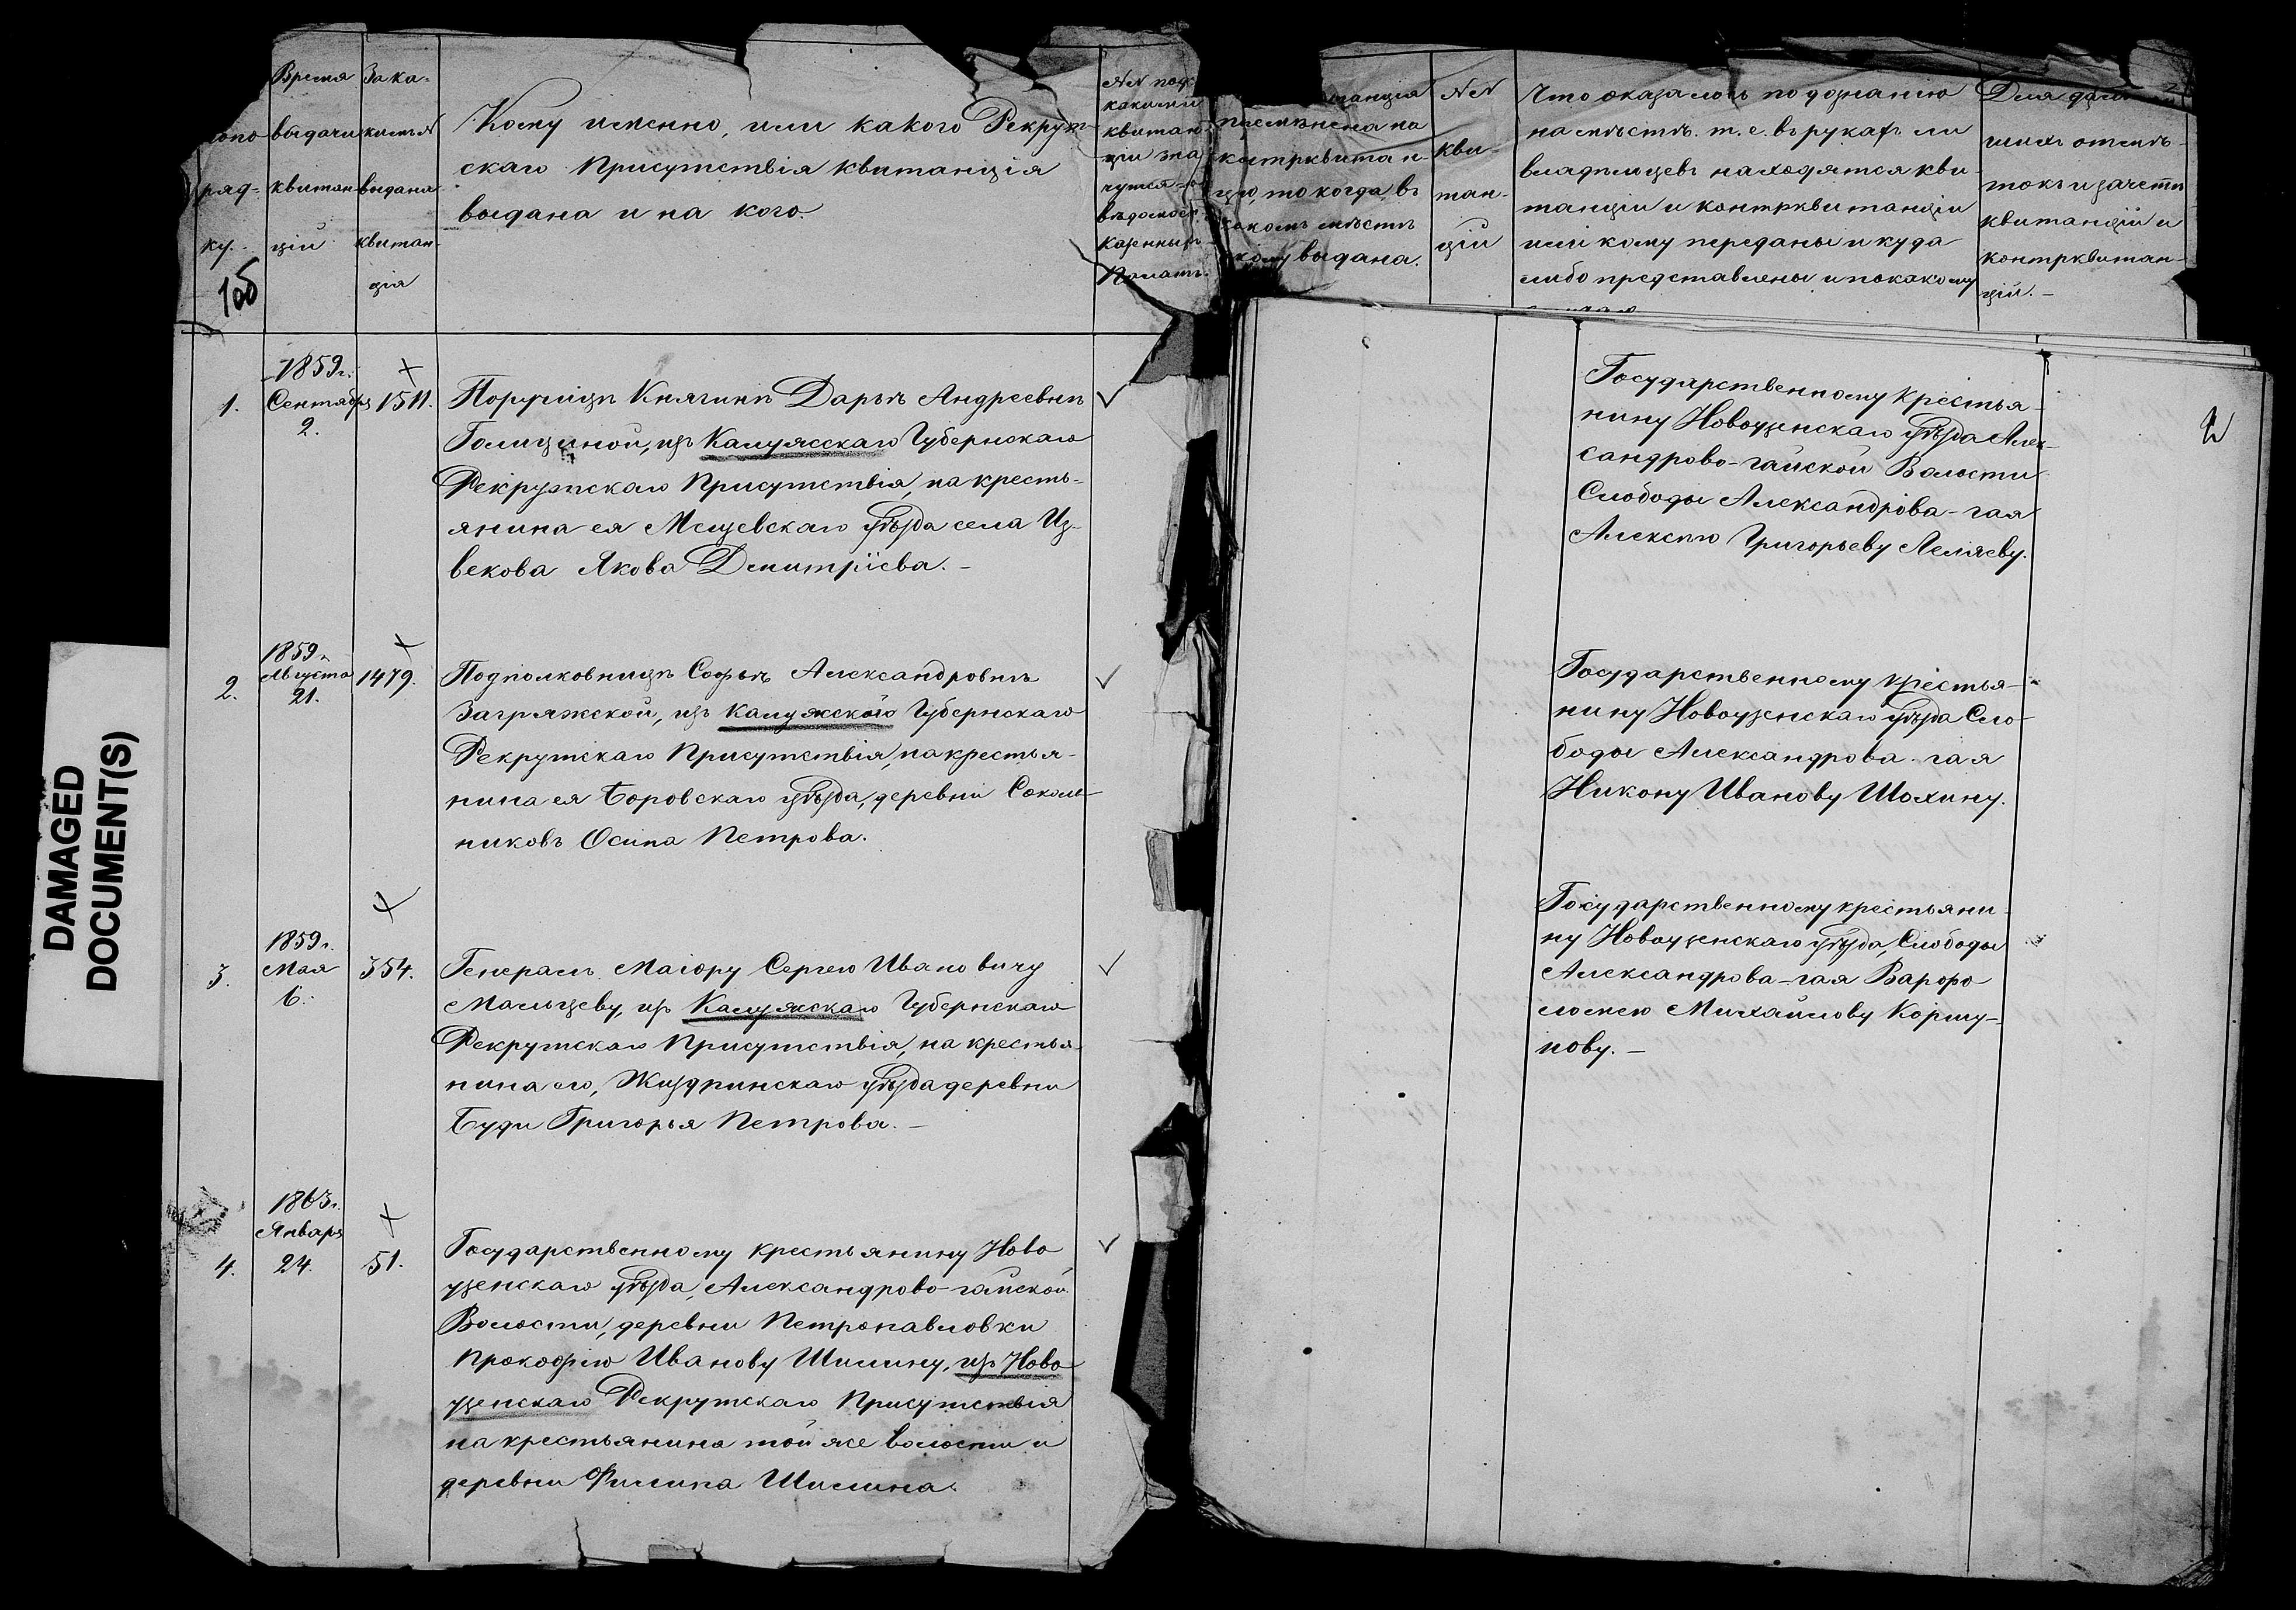 DAMAGED
DOCUMENT(S)
Время
выдачи
квитан
цій
Зака-
кимъ №
выдана
квитан-
ція
ряд-
ку.
Кому именно, или какого Рекрут-
скаго Присутствія квитанція
выдана и на кого.
№№ подъ
какими
квитан-
ціи зна
чутся
вѣдомост.
Казенныхъ
Палатъ.
на
контрквитан-
цію, то когда, въ
какомъ мѣстѣ
кому выдана.
№№
кви-
тан-
цій
Что оказалось по дознанію
на мѣстѣ. т. е. въ рукахъ ли
владѣльцевъ находятся кви-
танціи и контрквитанціи
или кому переданы и куда
либо представлены и по какому
Для
отмѣ-
токъ и зачетѣ
квитанцій и
контрквитан-
цій. –
1.
1859 г.
Сентября
2.
1511.
Поручицѣ Княгинѣ Дарьѣ Андреевнѣ
Голицыной, изъ Калужскаго Губернскаго
Рекрутскаго Присутствія, на кресть-
янина ея Мещевскаго уѣзда села Из-
векова Якова Дмитріева. –
Государственному крестья-
нину Новоузенскаго уѣзда Алек-
сандрово-гайской Волости
Слободы Александрова-гая
Алексѣю Григорьеву Леляеву.
2
2.
1859 г.
Августа
21.
1479.
Подполковницѣ Софьѣ Александровнѣ
Загряжской, изъ Калужского Губернскаго
Рекрутскаго Присутствія, на крестья-
нина ея Боровскаго уѣзда, деревни Соколь-
никовъ Осипа Петрова.
Государственному крестья-
нину Новоузенскаго уѣзда Сло-
боды Александрова-гая
Никону Иванову Шохину.
3.
1859 г.
Мая
6.
354.
Генералъ Маіору Сергею Ивановичу
Мальцеву, изъ Калужскаго Губернскаго
Рекрутскаго Присутствія, на крестья-
нина его, Жиздринскаго уѣзда деревни
Буди Григорья Петрова. –
Государственному крестьяни-
ну Новоузенскаго уѣзда, Слободы
Александрова-гая Варфоло
ломею Михайлову Коршу-
нову. –
4.
1863 г.
Января
24.
51.
Государственному крестьянину Ново
узенскаго уѣзда, Александрово-гайской
Волости, деревни Петропавловки
Прокофію Иванову Шилину, изъ Ново
узенскаго Рекрутскаго Присутствія
на крестьянина той же волости и
деревни Филипа Шилина.